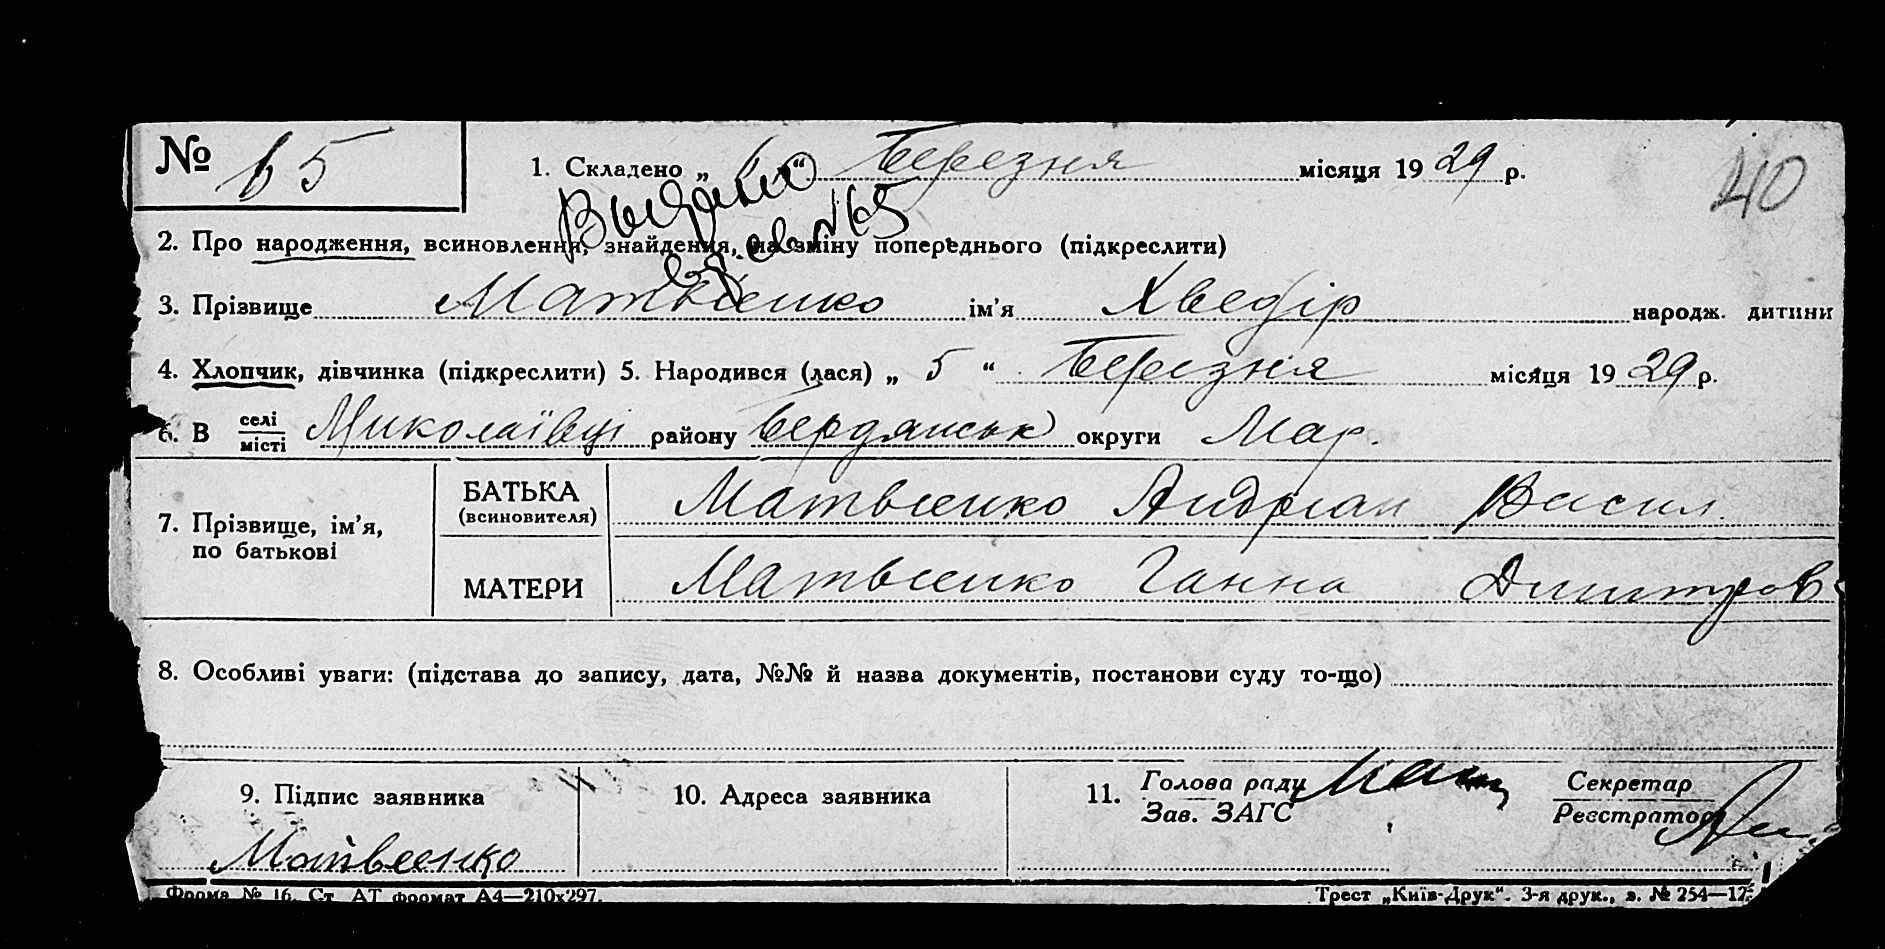 № 65
1. Складено „ 6 “ Березня місяця 1929 р.
40
2. Про народження, всиновлення, знайдення, на зміну попереднього (підкреслити)
3. Прізвище Матвієнко ім’я Хведір народж. дитини
4. Хлопчик, дівчинка (підкреслити) 5. Народився (лася) „ 5 “ Березня місяця 1929 р.
6. В селі місті Миколаївці району Бердянськ округи Мар.
7. Прізвище, ім’я, по батькові
БАТЬКА (всиновителя) Матвієнко Андріан Васил.
МАТЕРИ Матвієнко Ганна Дмитров
8. Особливі уваги: (підстава до запису, дата, №№ й назва документів, постанови суду то-що)
9. Підпис заявника
Матвеенко
10. Адреса заявника
11. Голова ради
Зав. ЗАГС
Секретар
Реєстратор
Форма № 16. Ст. АТ формат А4—210х297.
Трест „Київ-Друк“. 3-я друк., з. № 254—12